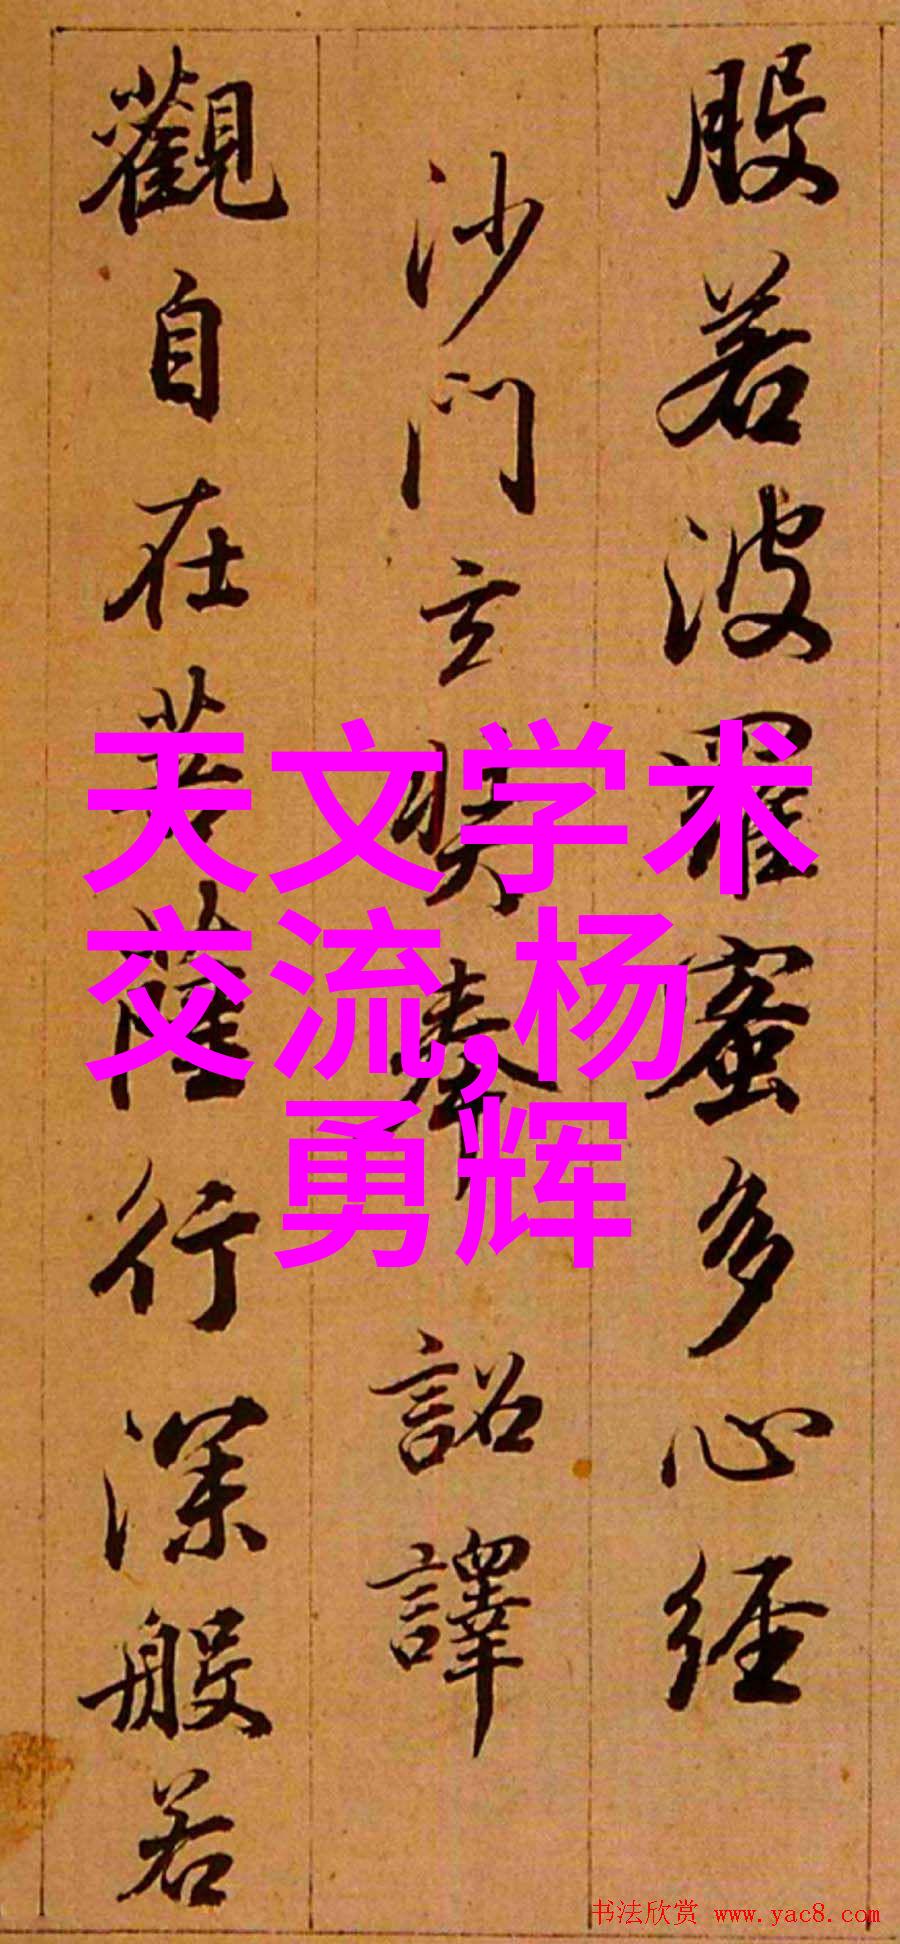 般若波羅蜜多心經
沙門玄奘奉詔譯
觀自在菩薩行深般若
天文学术
交流,杨
勇辉
书法欣赏 www.yac8.com